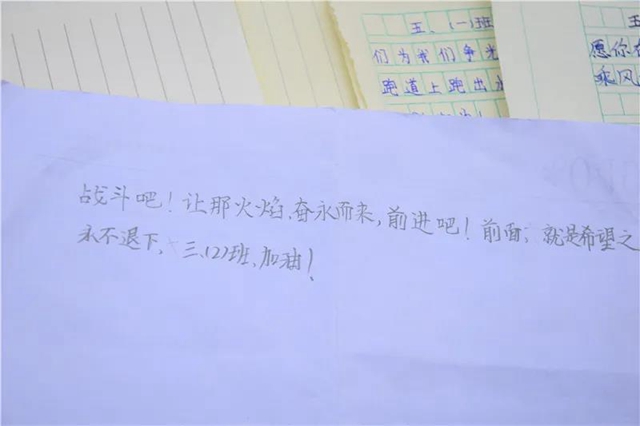 五、(一)班
们为我们争光
跑道上跑出
愿你在
乘风
战斗吧！让那火焰、奋永而来，前进吧！前面，就是希望之
永不退下，三、(2)班、加油！